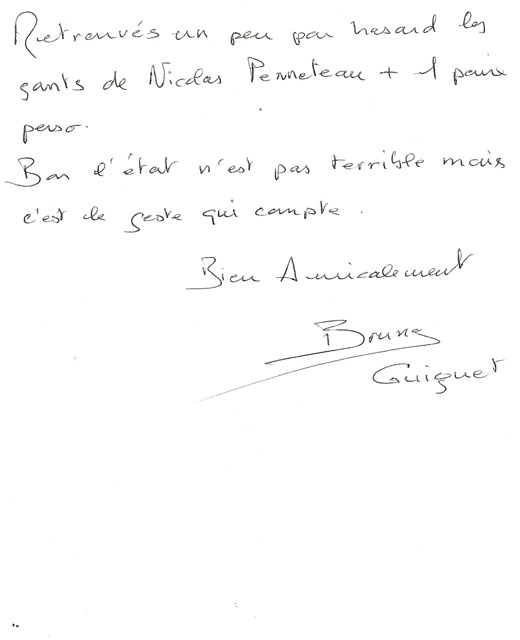 Retrouvés un peu par hasard les
gants de Nicolas Penneteau + 1 paire
perso.
Bon l'état n'est pas terrible mais
c'est le geste qui compte.
Bien Amicalement
Bruno
Guiguet